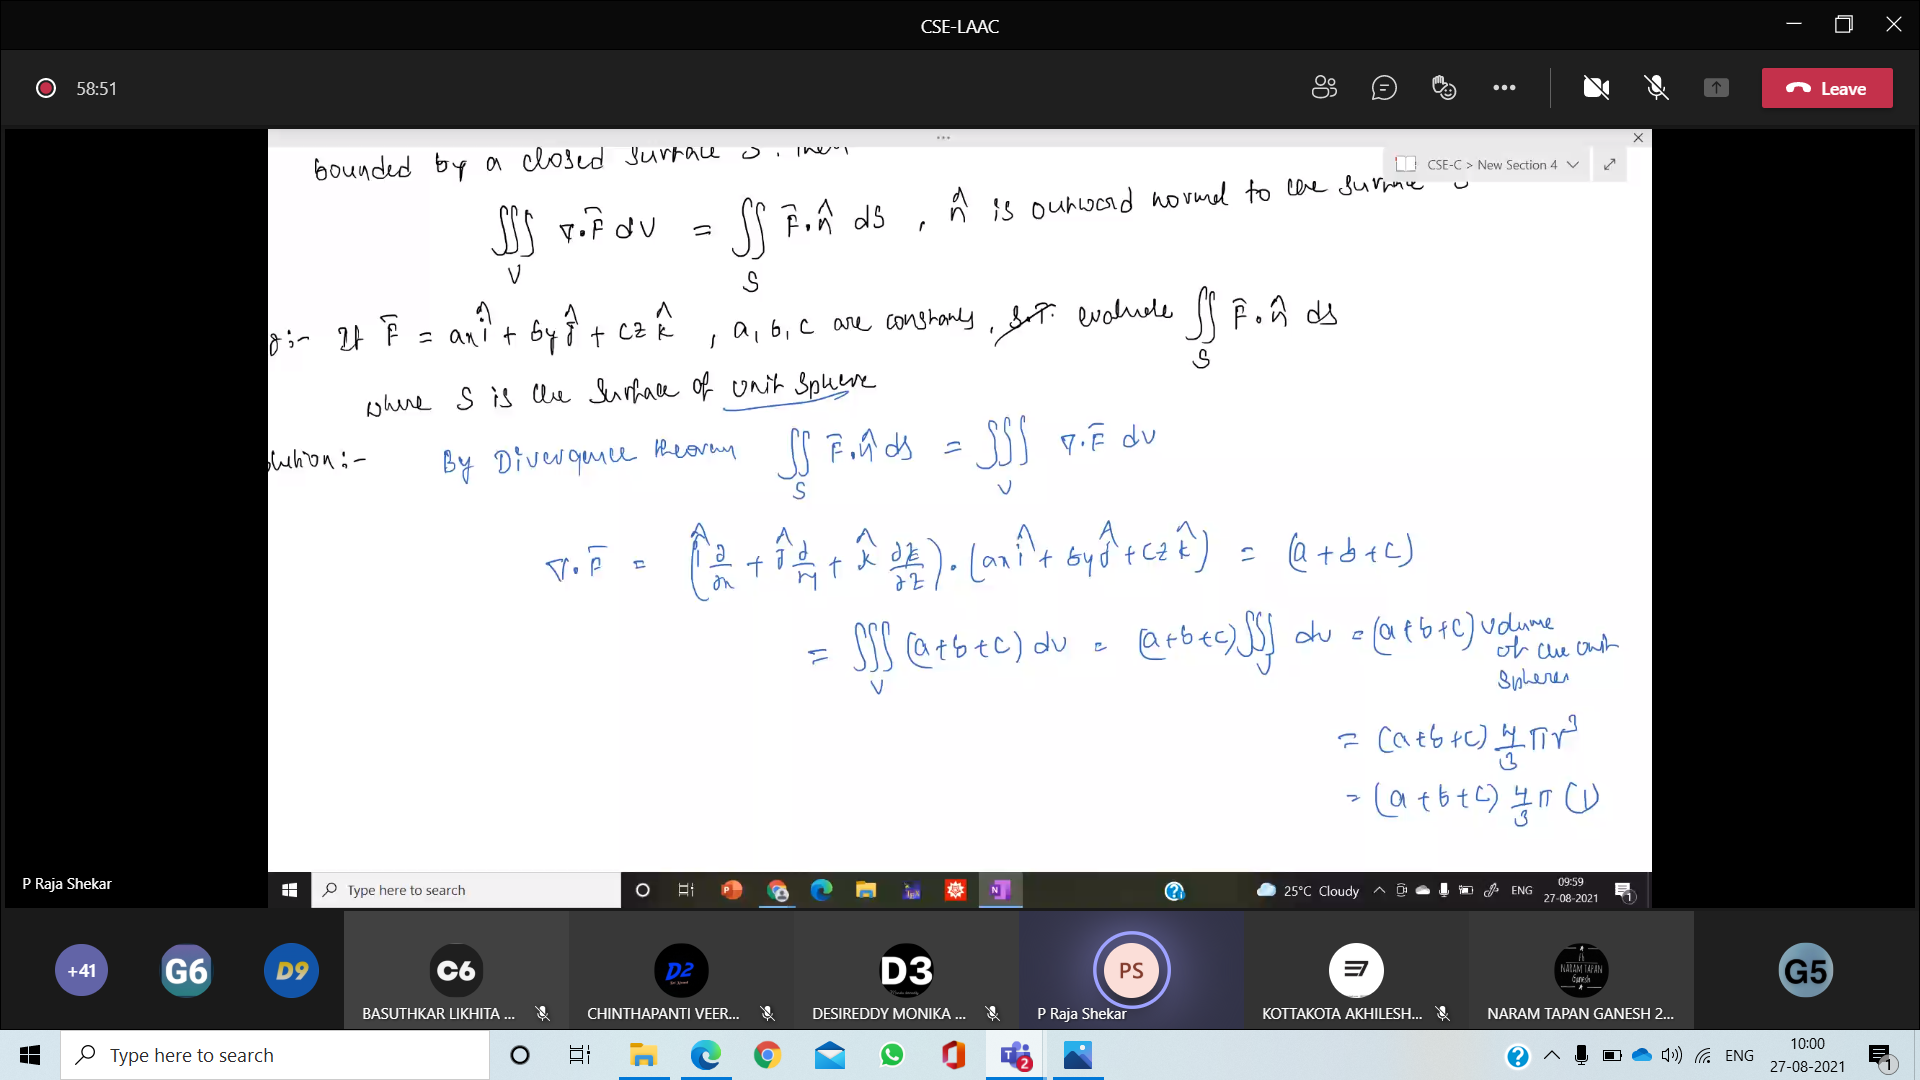 CSE-LAAC
58:51
Leave
CSE-C > New Section 4
bounded by a closed surface S. Then
∭ ∇·F̄ dV = ∬ F̄·n̂ dS , n̂ is outward normal to the surface S
V S
g:- If F̄ = axî + byĵ + czk̂ , a, b, c are constants, S.T. evaluate ∬ F̄·n̂ ds
S
where S is the surface of unit sphere
olution:- By Divergence theorem ∬ F̄·n̂ ds = ∭ ∇·F̄ dv
S V
∇·F̄ = (î ∂/∂x + ĵ ∂/∂y + k̂ ∂z/∂z)·(axî + byĵ + czk̂) = (a+b+c)
= ∭ (a+b+c) dv = (a+b+c) ∭ dv = (a+b+c) volume
of the unit
V V
sphere
= (a+b+c) 4/3 πr³
= (a+b+c) 4/3 π (1)
P Raja Shekar
Type here to search
25°C Cloudy
ENG
09:59
27-08-2021
1
+41
G6
D9
C6
D2
D3
PS
G5
BASUTHKAR LIKHITA ...
CHINTHAPANTI VEER...
DESIREDDY MONIKA ...
P Raja Shekar
KOTTAKOTA AKHILESH...
NARAM TAPAN GANESH 2...
NARAM TAPAN
Ganesh
Type here to search
2
ENG
10:00
27-08-2021
1